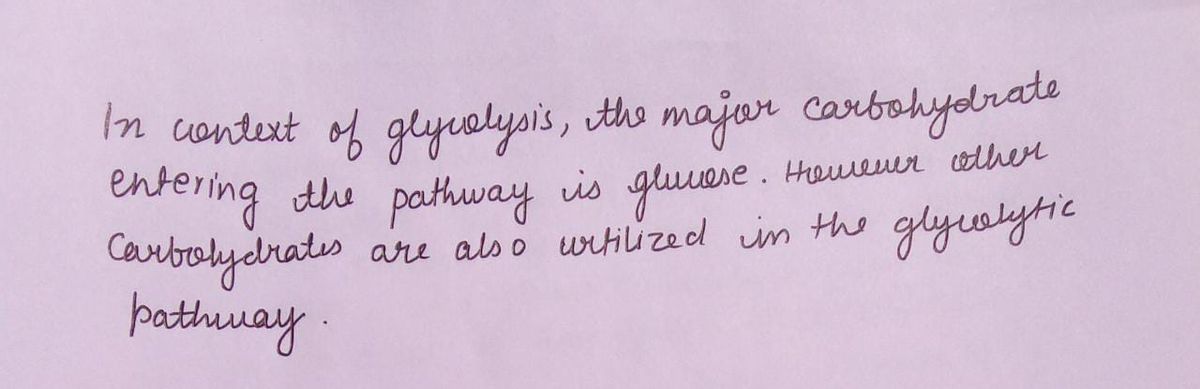 In context of glycolysis, the major carbohydrate
entering the pathway is glucose. However other
Carbohydrates are also utilized in the glycolytic
pathway.